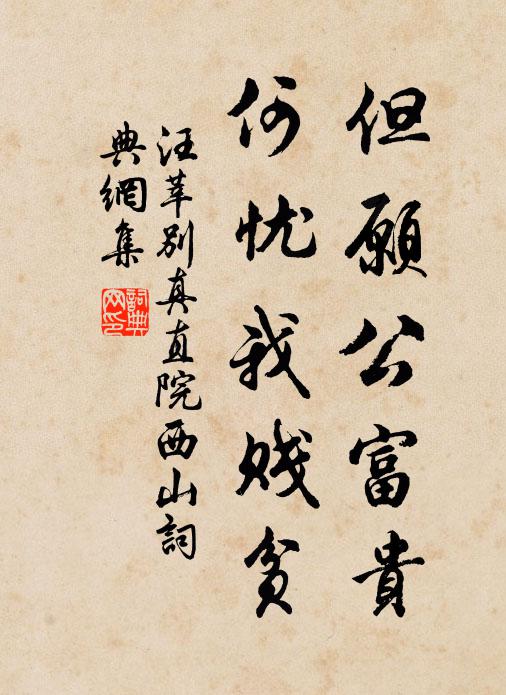 但願公富貴
何忧我贱貧
汪莘别真直院西山詞
典網集
詞典
网印